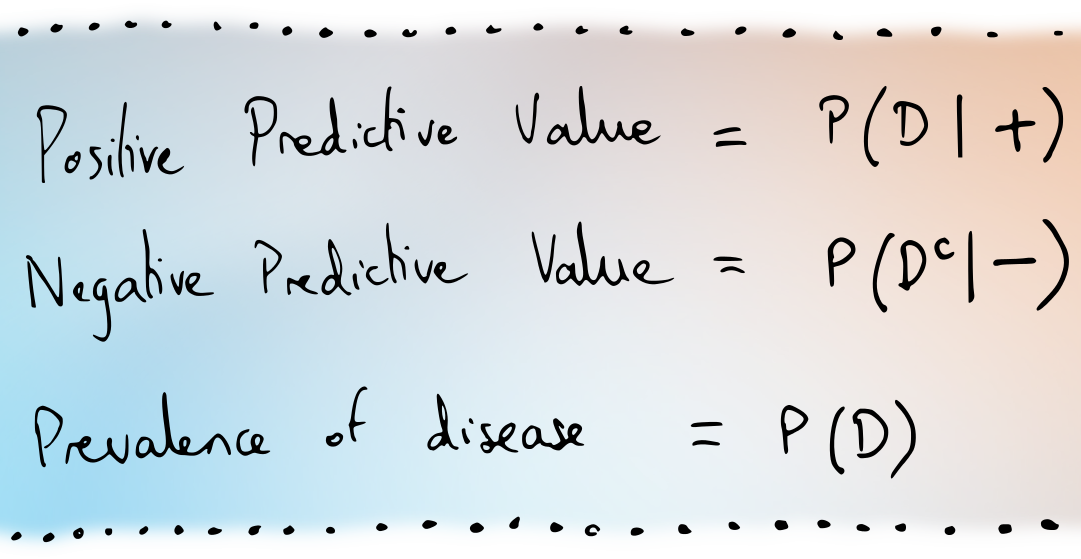 Positive Predictive Value = P(D | +)
Negative Predictive Value = P(Dᶜ | −)
Prevalence of disease = P(D)